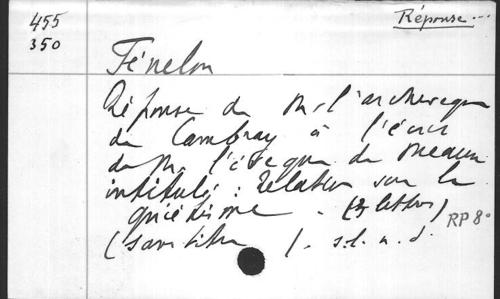 455
350
Réponse...
Fénelon
Réponse de Mr l'archeveque
de Cambray à l'écrit
de M. l'éveque de Meaux
intitulé : Relation sur le
quiétisme. (2 lettres)
RP 8°
(sans titre). s.l.n.d.